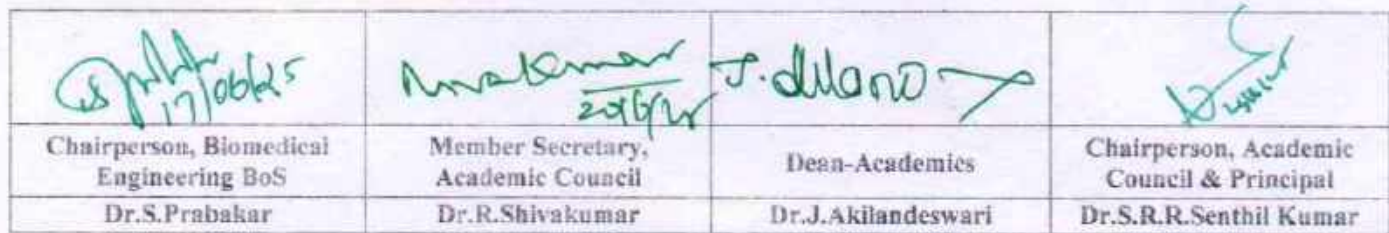 17/06/25
20/6/25
Chairperson, Biomedical
Engineering BoS
Member Secretary,
Academic Council
Dean-Academics
Chairperson, Academic
Council & Principal
Dr.S.Prabakar
Dr.R.Shivakumar
Dr.J.Akilandeswari
Dr.S.R.R.Senthil Kumar